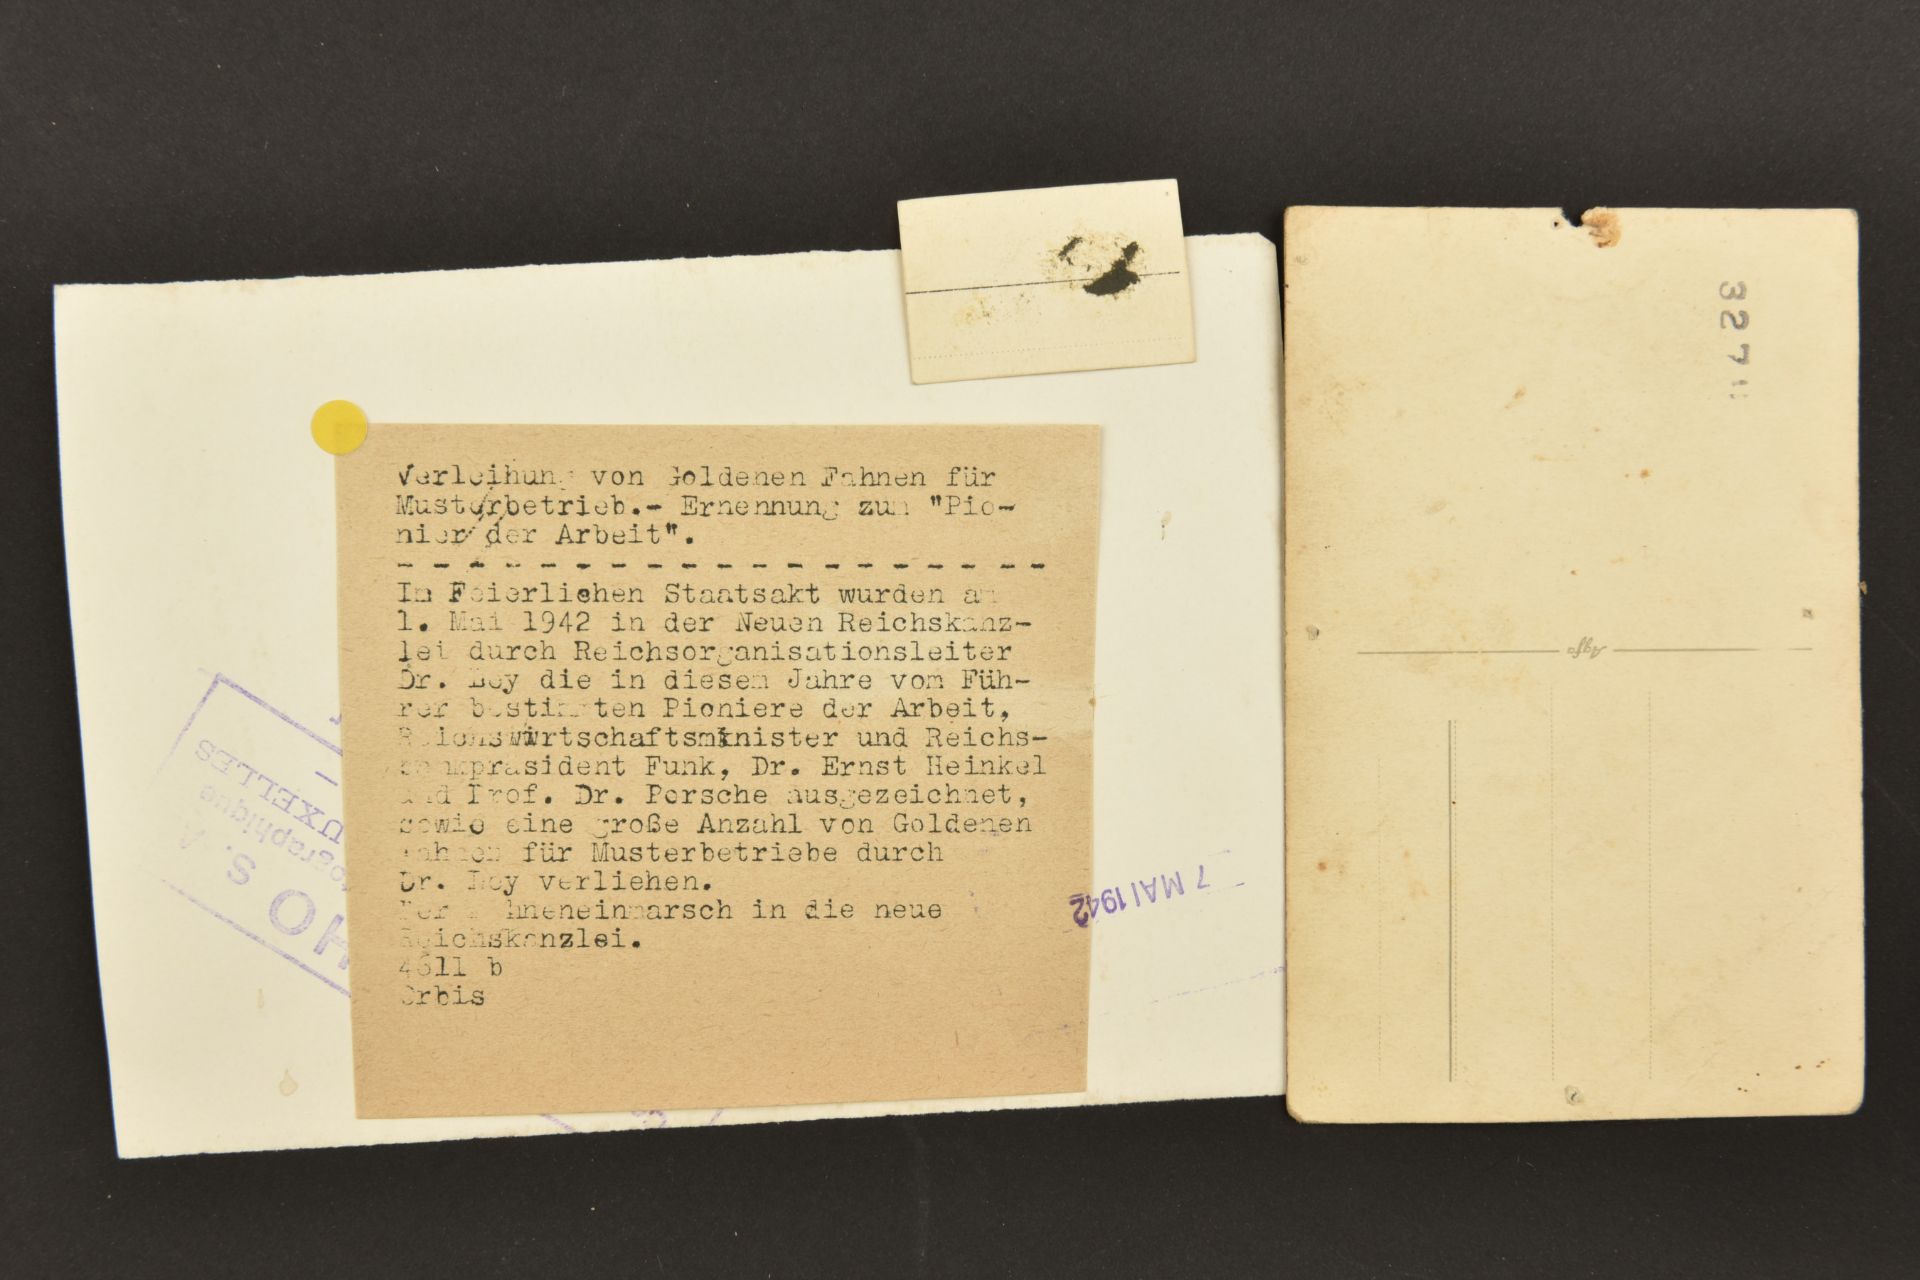 Verleihung von Goldenen Fahnen für
Musterbetrieb.- Ernennung zum "Pio-
nier der Arbeit".
- - - - - - - - - - - - - - - - - - -
Im Feierlichen Staatsakt wurden am
1. Mai 1942 in der Neuen Reichskanz-
lei durch Reichsorganisationsleiter
Dr. Ley die in diesem Jahre vom Füh-
rer bestimmten Pioniere der Arbeit,
Reichswirtschaftsminister und Reichs-
bankpräsident Funk, Dr. Ernst Heinkel
und Prof. Dr. Porsche ausgezeichnet,
sowie eine große Anzahl von Goldenen
Fahnen für Musterbetriebe durch
Dr. Ley verliehen.
Der Fahneneinmarsch in die neue
Reichskanzlei.
4611 b
Orbis
7 MAI 1942
HO S. A.
ographique
UXELLES
3271
Agfa